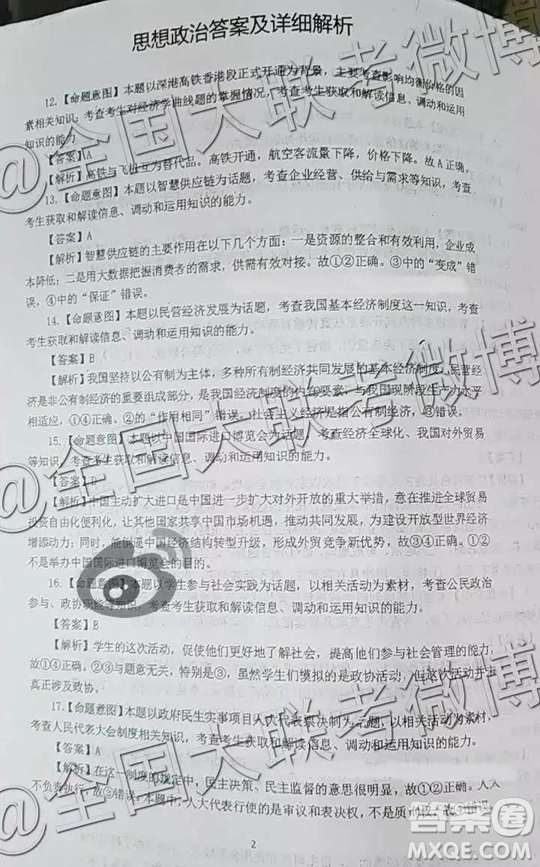 思想政治答案及详细解析
12.【命题意图】本题以深港高铁香港段正式开通为背景，主要考查影响均衡价格的因
素相关知识，考查考生对经济学曲线题的掌握情况，考查考生获取和解读信息、调动和运用
知识的能力。
【答案】A
【解析】高铁与飞机互为替代品。高铁开通，航空客流量下降，价格下降。故A正确。
13.【命题意图】本题以智慧供应链为话题，考查企业经营、供给与需求等知识，考查
考生获取和解读信息、调动和运用知识的能力。
【答案】A
【解析】智慧供应链的主要作用在以下几个方面：一是资源的整合和有效利用，企业成
本降低；二是用大数据把握消费者的需求，供需有效对接。故①②正确。③中的“变成”错
误，④中的“保证”错误。
14.【命题意图】本题以民营经济发展为话题，考查我国基本经济制度这一知识，考查
考生获取和解读信息、调动和运用知识的能力。
【答案】B
【解析】我国坚持以公有制为主体，多种所有制经济共同发展的基本经济制度。民营经
济是非公有制经济的重要组成部分，是我国经济制度的内在要素，与我国现阶段生产力水平
相适应，①④正确。②的“作用相同”错误。社会主义经济是指公有制经济，③错误。
15.【命题意图】本题以中国国际进口博览会为话题，考查经济全球化、我国对外贸易
等知识，考查考生获取和解读信息、调动和运用知识的能力。
【答案】B
【解析】中国主动扩大进口是中国进一步扩大对外开放的重大举措，意在推进全球贸易
投资自由化便利化，让其他国家共享中国市场机遇，推动共同发展，为建设开放型世界经济
增添动力；同时，能倒逼中国经济结构转型升级，形成外贸竞争新优势，故①④正确。②
不是举办中国国际进口博览会的目的。
16.【命题意图】本题以学生参与社会实践为话题，以相关活动为素材，考查公民政治
参与、政协职能等知识，考查考生获取和解读信息、调动和运用知识的能力。
【答案】B
【解析】学生的这次活动，促使他们更好地了解社会，提高他们参与社会管理的能力，
故①④正确。②③与题意无关，特别是③，虽然学生们模拟的是政协活动，但这次活动并未
真正涉及政协。
17.【命题意图】本题以政府民生实事项目人大代表票决制为主题，以相关活动为素材，
考查人民代表大会制度相关知识，考查考生获取和解读信息、调动和运用知识的能力。
【答案】A
【解析】在这一制度的规定中，民主决策、民主监督的意思很明显，故①②正确。人大
不负责执行，故③错误。本题中，人大代表行使的是审议和表决权，不是质询权，故④错误。
2
@全国大联考微博
@全国大联考微博
@全国大联考微博
答案圈
MXQE.COM